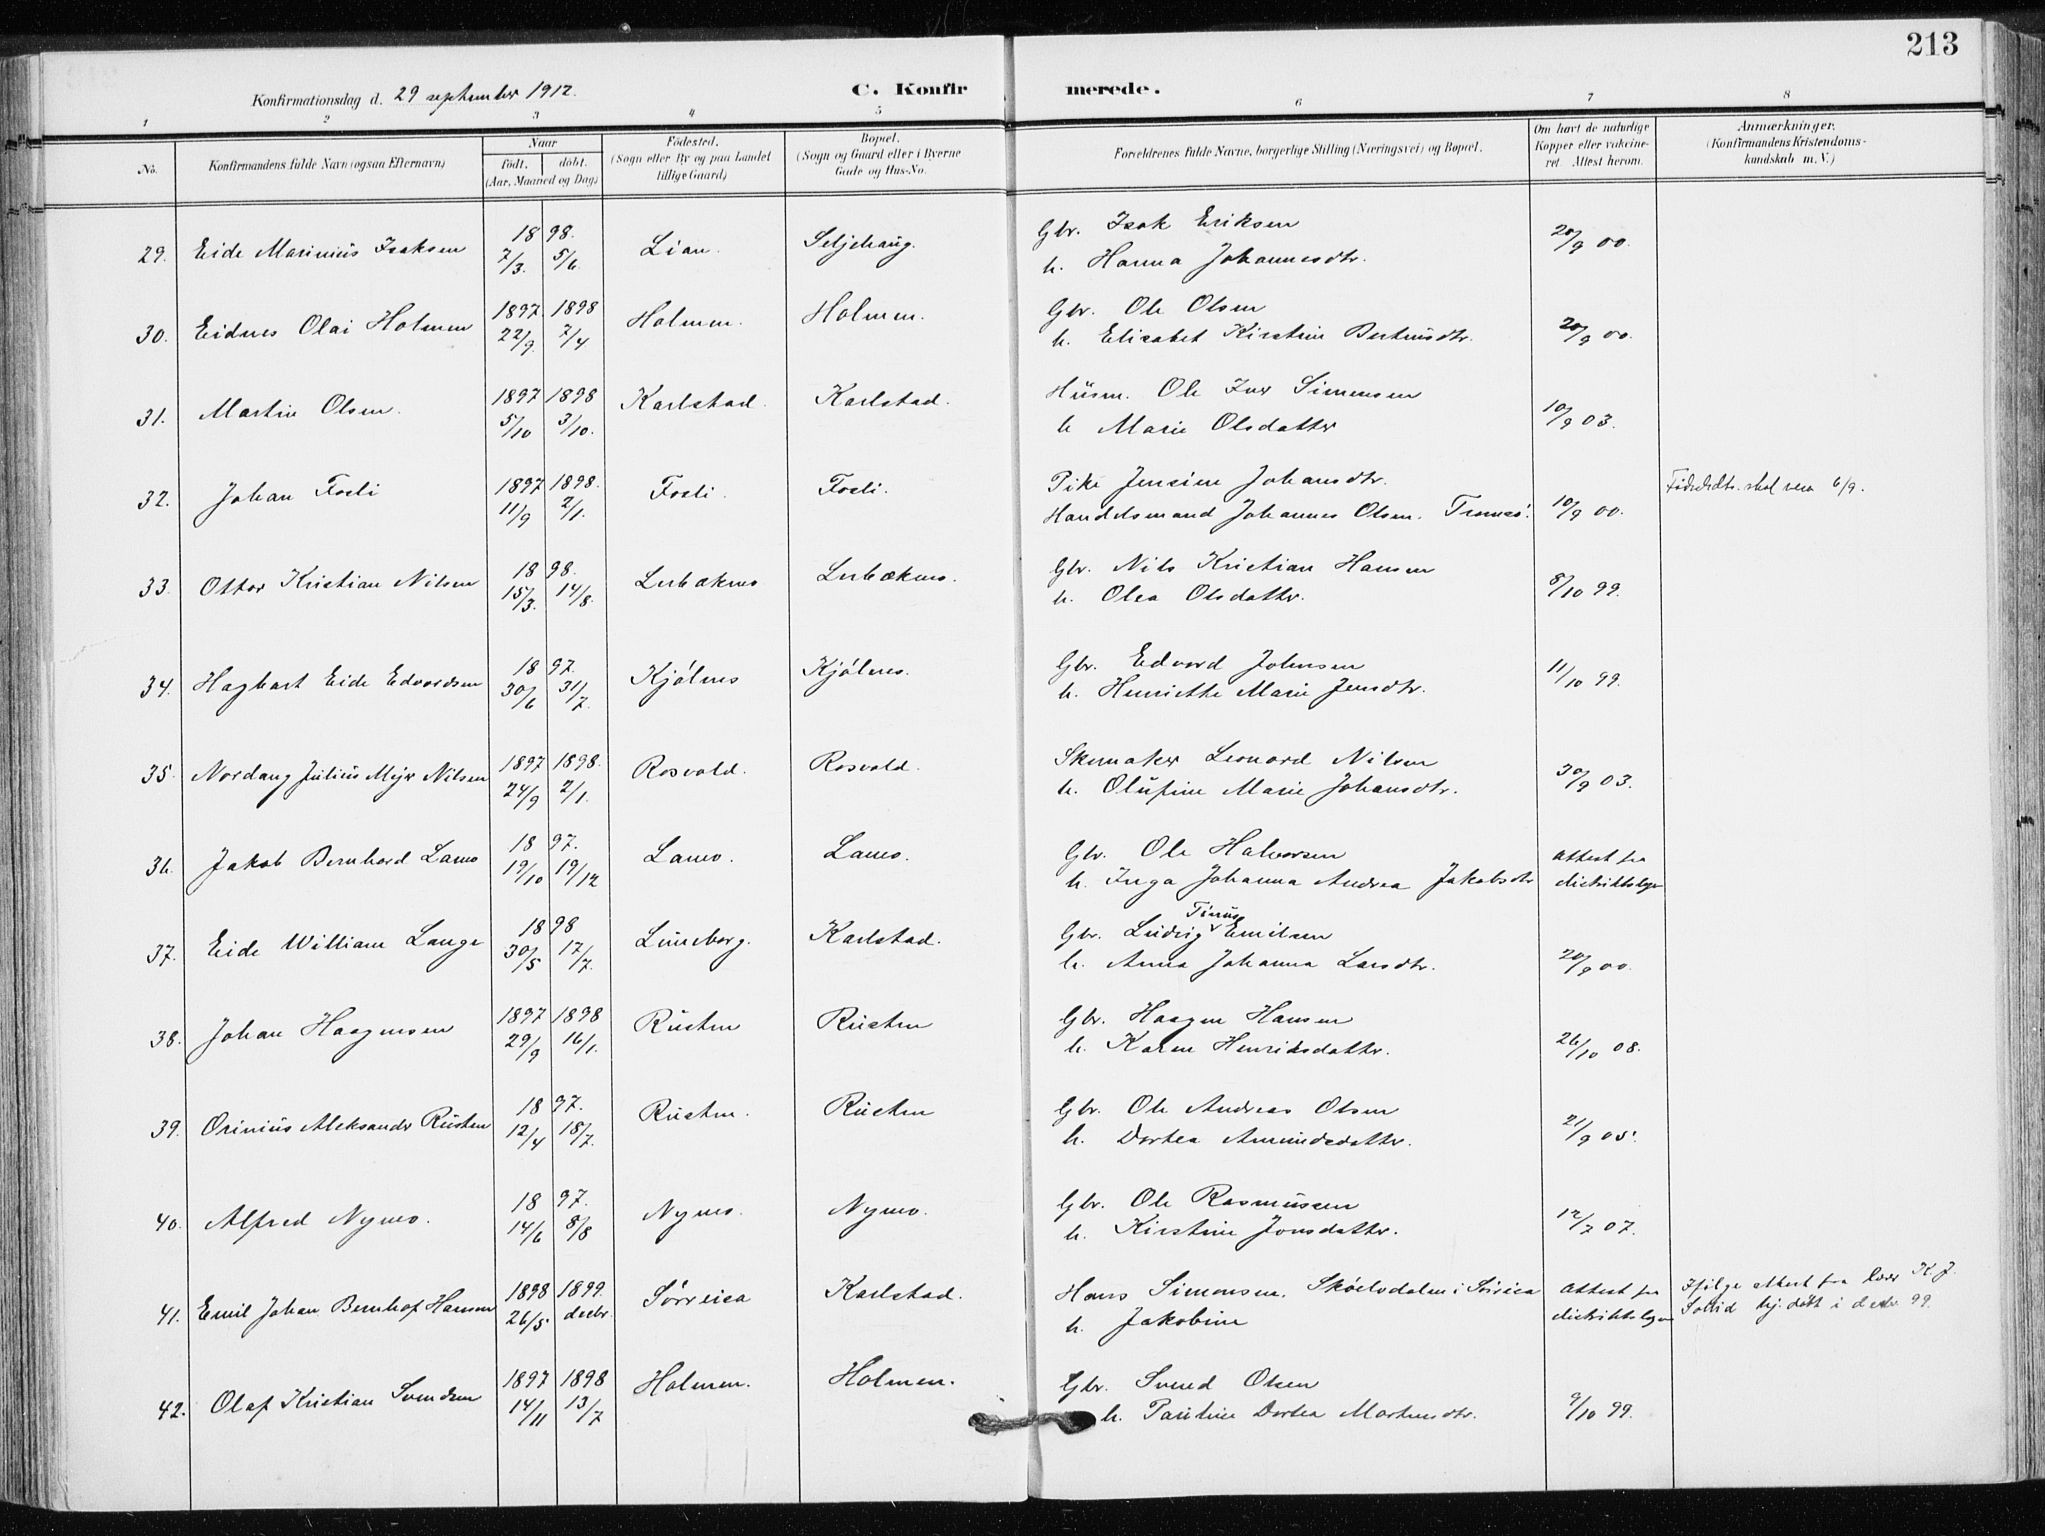 213
Konfirmationsdag d. 29 september 1912. C. Konfirmerede.
1 2 3 4 5 6 7 8
No. Konfirmandens fulde Navn (ogsaa Efternavn) Naar født. døbt. (Aar, Maaned og Dag) Fødested. (Sogn eller By og paa Landet tillige Gaard) Bopæl. (Sogn og Gaard eller i Byerne Gade og Hus-No. Forældrenes fulde Navne, borgerlige Stilling (Næringsvei) og Bopæl. Om havt de naturlige Kopper eller vakcineret. Attest herom. Anmærkninger. (Konfirmandens Kristendomskundskab m. V.)
29. Eide Marinius Isaksen 1898. 7/3. 5/6 Lian. Seljehaug. Gbr. Isak Eriksen 20/9 00.
h. Hanna Johannesdtr.
30. Eidnes Olai Holmen 1897 1898 22/9. 7/4 Holmen. Holmen. Gbr. Ole Olsen 20/9 00.
h. Elisabet Kirstine Bertinsdtr.
31. Martin Olsen. 1897 1898 5/10 3/10. Karlstad. Karlstad. Husm. Ole Iver Simonsen 10/9 03.
h Marie Olsdatter
32. Johan Fosli 1897 1898. 11/9 2/1. Fosli. Fosli. Pike Jensine Johansdtr. Fødselsdtr. skal være 6/9.
Handelsmand Johannes Olsen. Tromsø. 10/9 00.
33. Ottar Kristian Nilsen 1898. 15/3. 14/8. Lerbæknes Lerbæknes. Gbr. Nils Kristian Hansen 8/10 99.
h. Olea Olsdatter.
34. Hagbart Eide Edvardsen 1897. 30/6 31/7. Kjølnes Kjølnes. Gbr. Edvard Johnsen 11/10 99.
h. Henriette Marie Jensdtr.
35. Nordang Julius Mejer Nilsen 1897 1898. 24/9 2/1. Rosvold. Rosvold. Skomaker Leonard Nilsen 30/9 03.
h. Olufine Marie Johansdtr.
36. Jakob Bernhard Lamo 1897. 19/10 19/12 Lamo. Lamo. Gbr. Ole Halvorsen attest fra
h. Inga Johanna Andrea Jakobsdtr distriktslægen
37. Eide William Lange 1898 30/5 17/7. Luneborg. Karlstad. Gbr. Ludvig Tinus Emilsen 20/9 00.
h. Anna Johanna Larsdtr.
38. Johan Haagensen 1897 1898 29/9 16/1. Rusten Rusten Gbr. Haagen Hansen 26/10 08.
h. Karen Henriksdatter.
39. Orinius Aleksander Rusten 1897. 12/4 18/7. Rusten. Rusten Gbr. Ole Andreas Olsen 21/9 05.
h. Dortea Amundsdatter.
40. Alfred Nymo. 1897. 14/6 8/8 Nymo. Nymo. Gbr. Ole Rasmussen 12/7 07.
h. Kirstine Jonsdatter.
41. Emil Johan Bernhof Hansen 1898 1899. 26/5 decbr. Sørreisa Karlstad. Hans Simonsen. Skøelvdalen i Sørreisa attest fra Ifølge attest fra lærer K. J.
h. Jakobine distriktslægen Solliid hj. døbt i decbr. 99.
42. Olaf Kristian Svendsen 1897 1898 14/11 13/7 Holmen. Holmen. Gbr. Svend Olsen 9/10 99.
h. Pauline Dortea Mortensdtr.